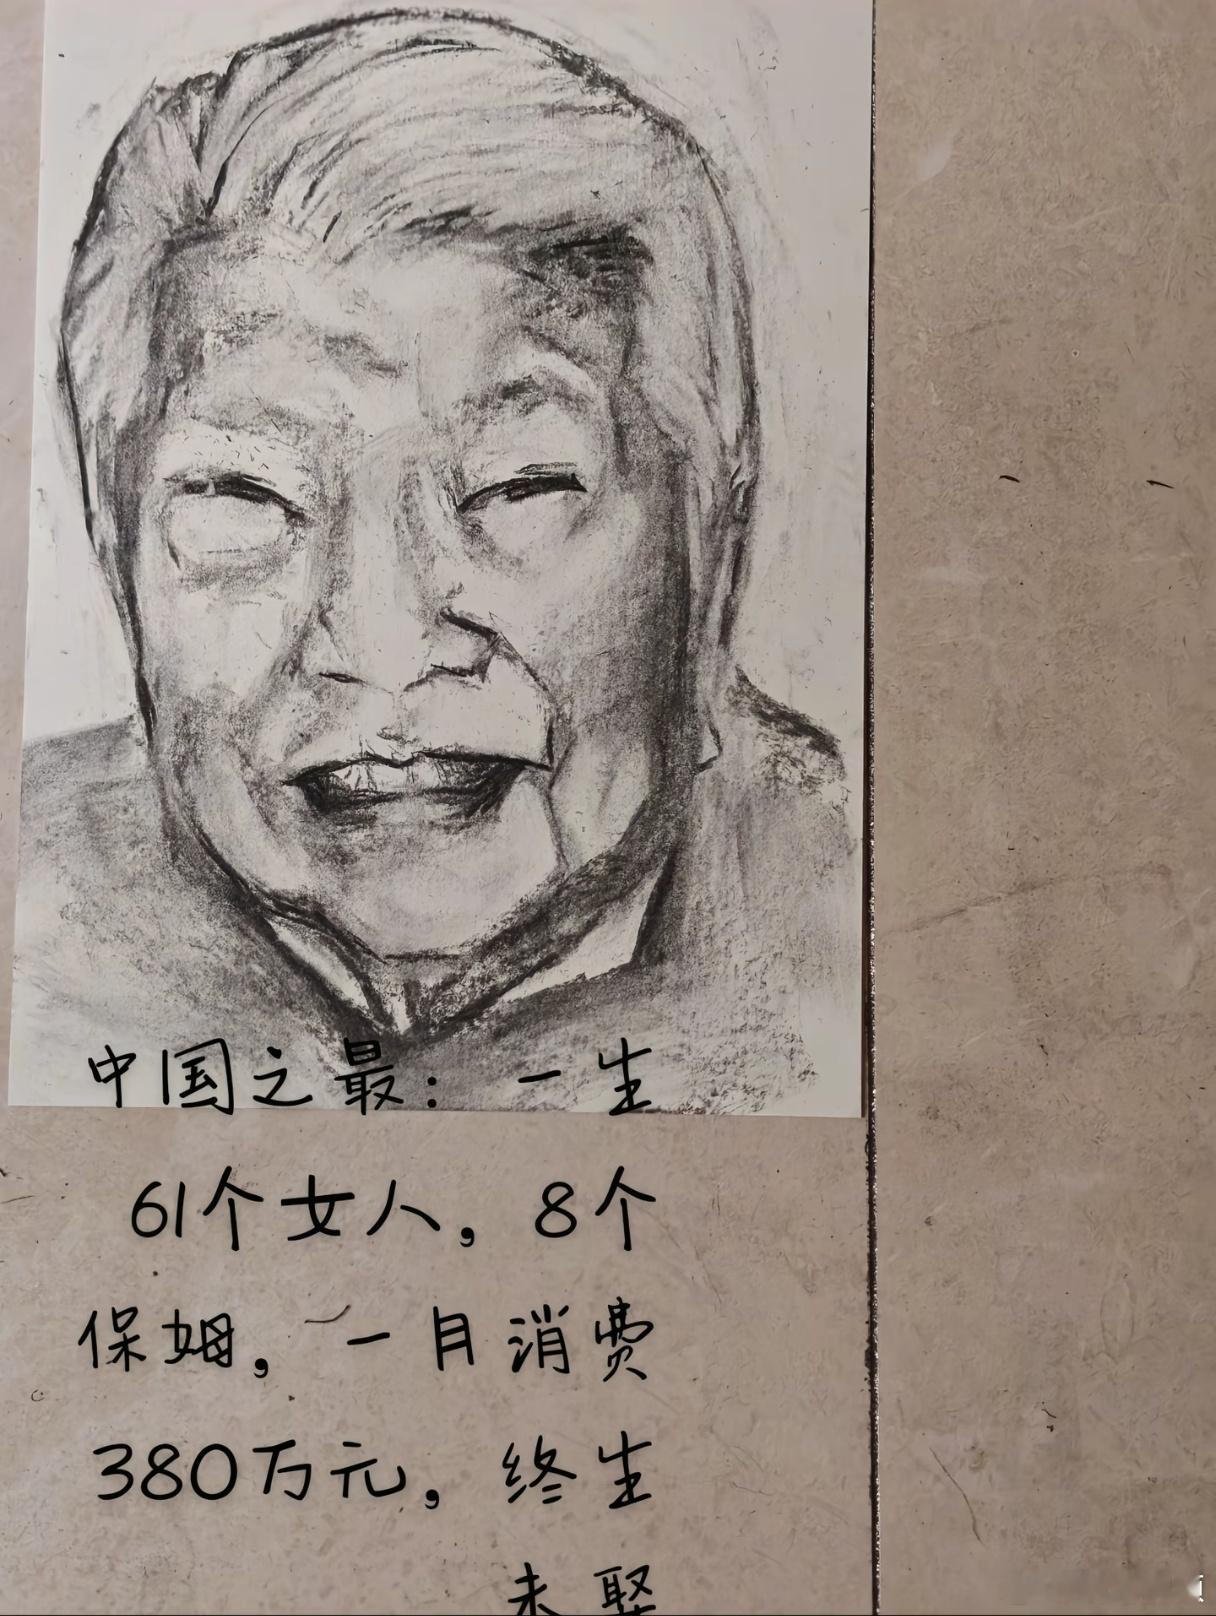 中国之最：一生
61个女人，8个
保姆，一月消费
380万元，终生
未娶